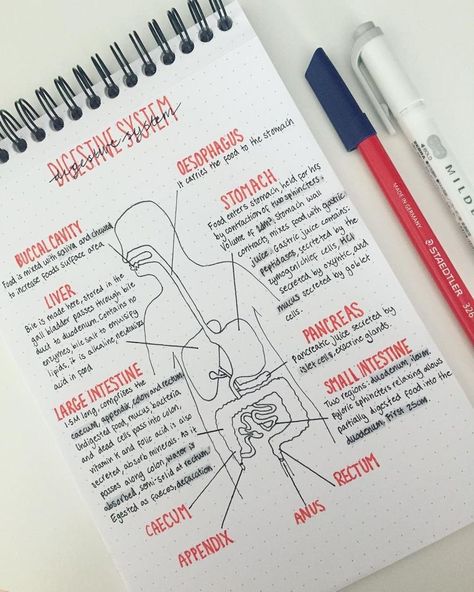 DIGESTIVE SYSTEM
digestive system
OESOPHAGUS
It carries the food to the stomach
BUCCAL CAVITY
Food is mixed with saliva and chewed
to increase foods surface area
STOMACH
Food enters stomach held for hrs
by contraction of two sphincters.
volume of stomach wall
contracts mixes food with gastric
juice. Gastric juice contains:
peptidases, secreted by the
zymogen/chief cells, HCl
secreted by oxyntic, and
mucus secreted by goblet
cells.
LIVER
Bile is made here, stored in the
gall bladder passes through bile
duct to duodenum. Contains no
enzymes, bile salt to emulsify
lipids, it is alkaline neutralize
acid in food
PANCREAS
Pancreatic juice secreted by
islet cells, exocrine glands.
LARGE INTESTINE
1.5M long, comprises the
caecum, appendix, colon and rectum.
Undigested food, mucus, bacteria
and dead cells pass into colon.
vitamin K and folic acid is also
secreted, absorb minerals. As it
passes along colon, water is
absorbed, semi-solid at rectum.
Egested as faeces, defacation.
SMALL INTESTINE
Two regions: duodenum,
Pyloric sphincters relaxing allows
partially digested food into the
duodenum, first 25cm.
RECTUM
ANUS
CAECUM
APPENDIX
MADE IN GERMANY
STAEDTLER
326
MILD